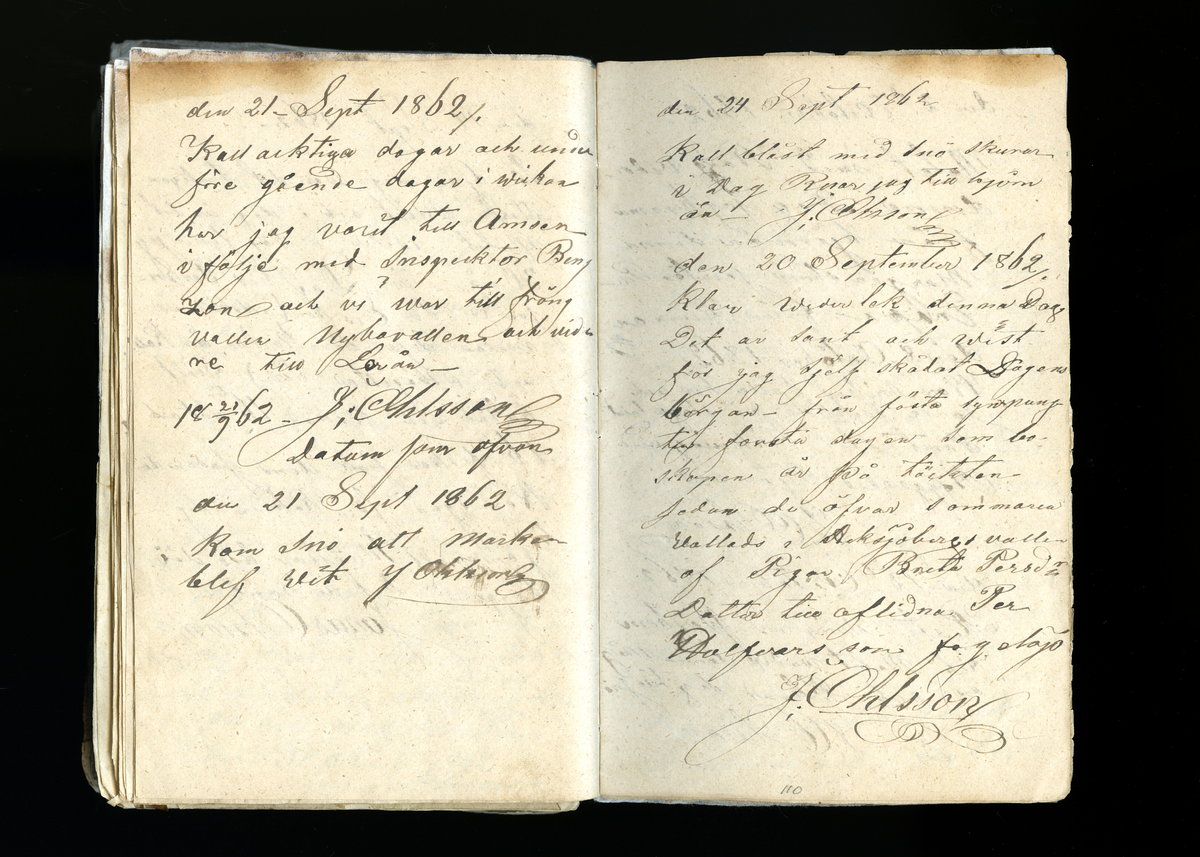 den 21 Sept 1862/.
Kall acktiga dagar och under
före gående dagar i wickan
har jag varit till Amsen
i följe med Inspecktor Beng
zon och vi war till fräng
vallen Nybavallen och vida
re till Lerån –
18 21/9 62 – J; Öhlsson
Datum som ofvan
den 21 Sept 1862
Kom snö att marken
blef vit J Öhlsson
den 24 Sept 1862
Kall blåst med snö skurar
i Dag Resar jag till björn
ån – J, Öhlson
den 20 September 1862/.
Klar väderlek denna Dag
Det är sant och wist
för jag sjelf skådat Dagens
början – från
första dagen som bo-
skapen är på
sedan de öfver sommaren
Vallads i vallen
af Pigan Brita Persdr
Dotter till aflidna Per
Halfvars son
J; Öhlsson
110